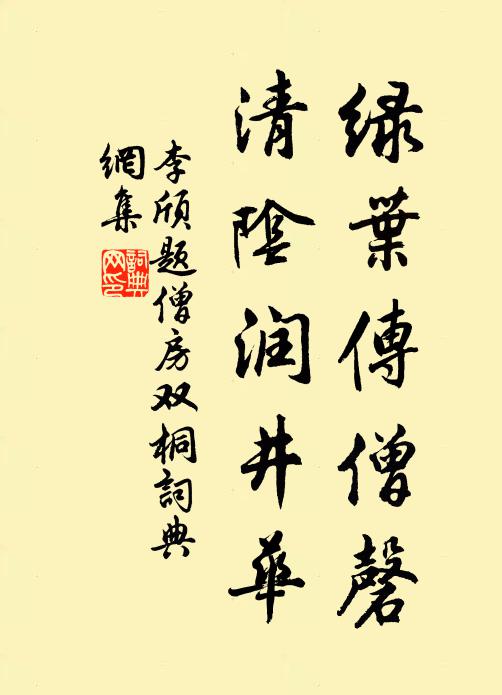 绿葉傳僧磬
清陰润井華
李頎题僧房双桐詞典
網集
詞典网印